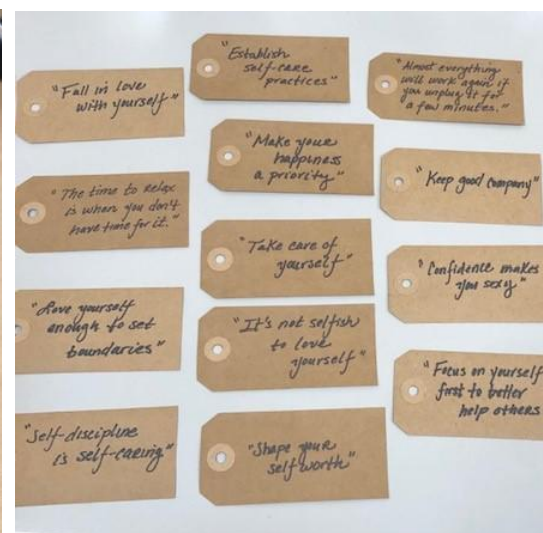 "Fall in love
with yourself"
"The time to relax
is when you don't
have time for it."
"Love yourself
enough to set
boundaries"
"Self-discipline
is self-caring"
"Establish
self-care
practices"
"Make your
happiness
a priority"
"Take care of
yourself"
"It's not selfish
to love
yourself"
"Shape your
self worth"
"Almost everything
will work again if
you unplug it for
a few minutes."
"Keep good company"
"Confidence makes
you sexy"
"Focus on yourself
first to better
help others